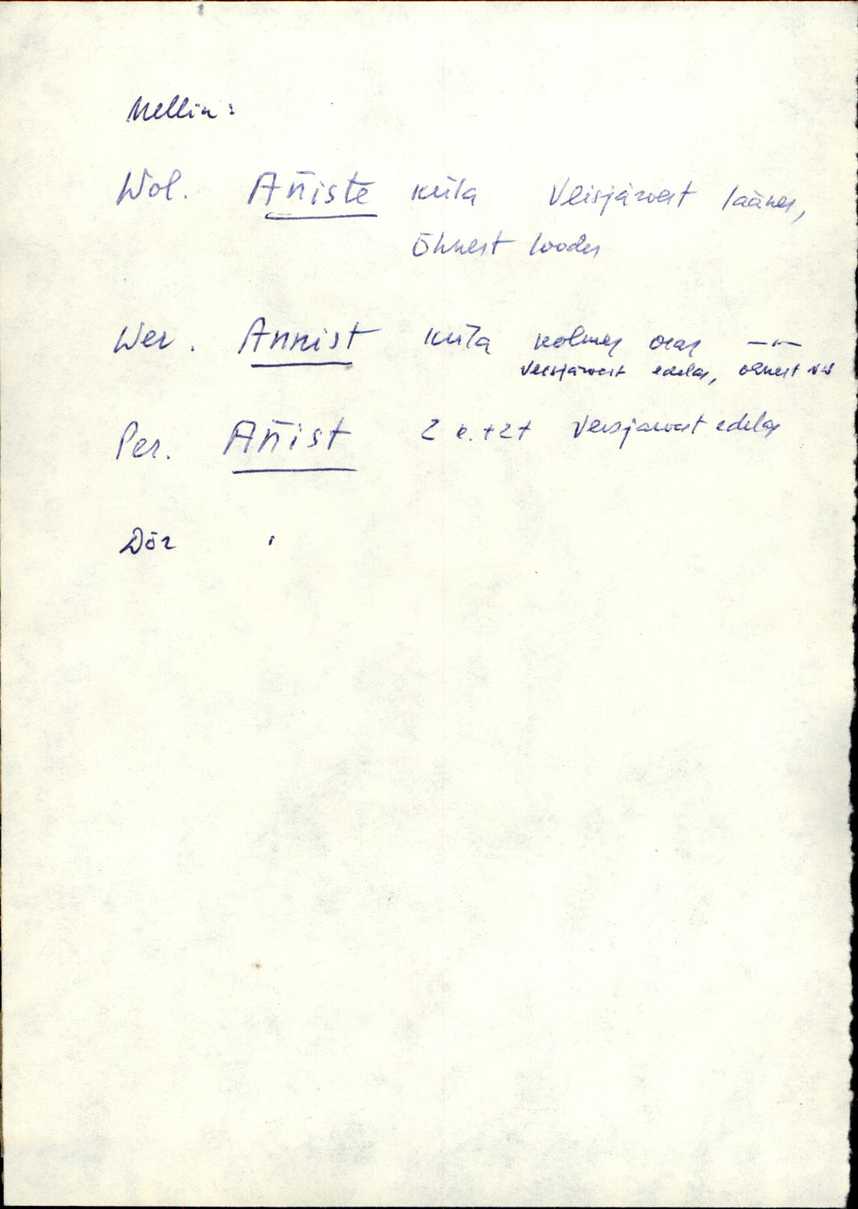 Mellin:
Wol. An̄iste küla Veisjärvest läänes,
Õhnest loodes
Wer. Annist küla kolmes osas —"—
Veisjärvest edelas, Õhnest
Per. An̄ist 2 t. + 2 t Veisjärvest edelas
Dör